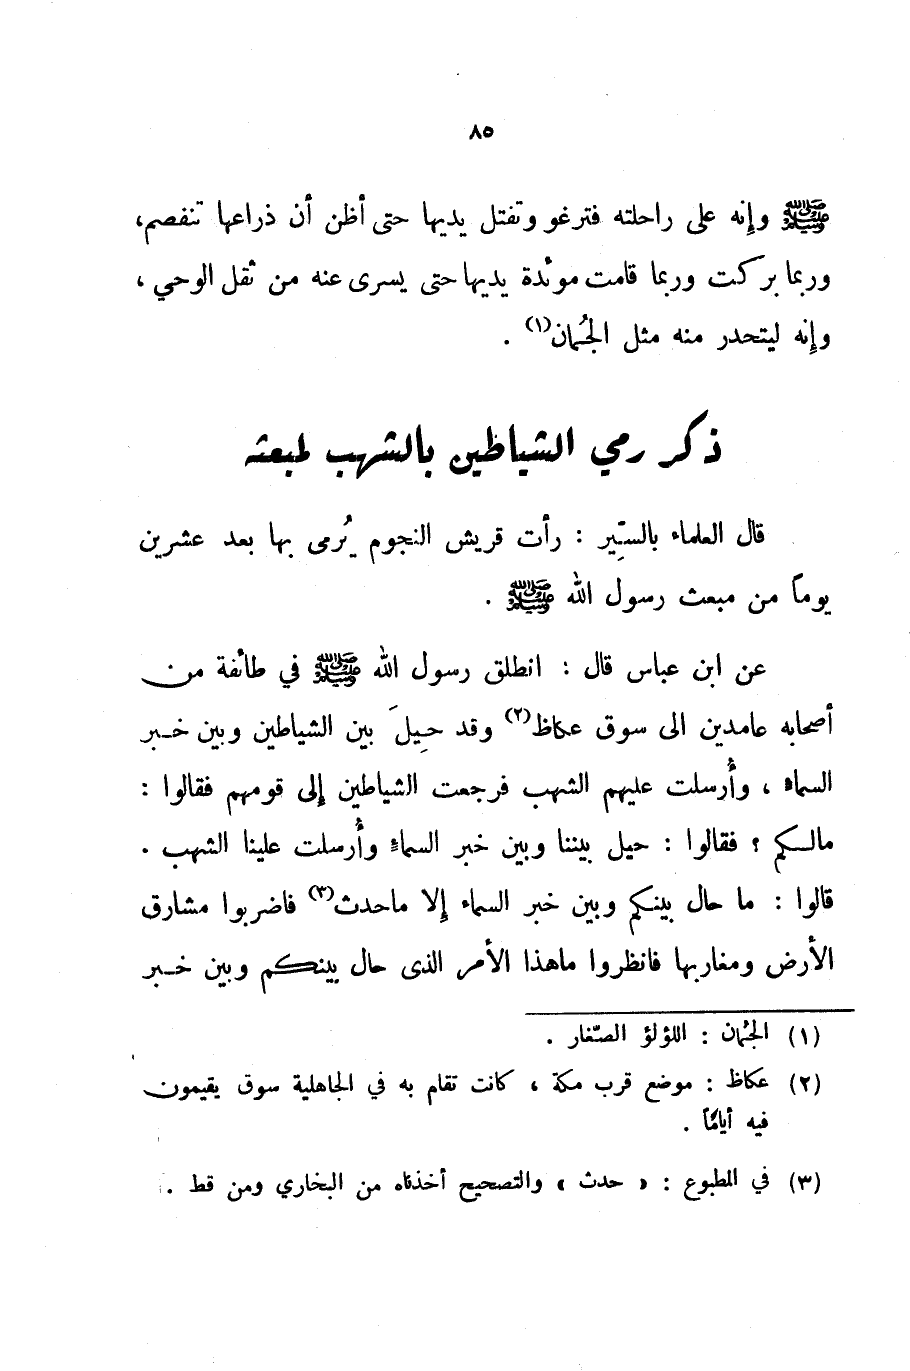 ٨٥
ﷺ وإنه على راحلته فترغو وتفتل يديها حتى أظن أن ذراعها تنفصم،
وربما بركت وربما قامت موئدة يديها حتى يسرى عنه من ثقل الوحي ،
وإنه ليتحدر منه مثل الجُمان(١) .
ذكر رمي الشياطين بالشهب لمبعثه
قال العلماء بالسِّير : رأت قريش النجوم يُرمى بها بعد عشرين
يوماً من مبعث رسول الله ﷺ .
عن ابن عباس قال : انطلق رسول الله ﷺ في طائفة من
أصحابه عامدين الى سوق عكاظ(٢) وقد حِيلَ بين الشياطين وبين خبر
السماء ، وأُرسلت عليهم الشهب فرجعت الشياطين إلى قومهم فقالوا :
مالكم ؟ فقالوا : حيل بيننا وبين خبر السماء وأُرسلت علينا الشهب .
قالوا : ما حال بينكم وبين خبر السماء إلا ماحدث(٣) فاضربوا مشارق
الأرض ومغاربها فانظروا ماهذا الأمر الذى حال بينكم وبين خبر
(١) الجُمان : اللؤلؤ الصّغار .
(٢) عكاظ : موضع قرب مكة ، كانت تقام به في الجاهلية سوق يقيمون
فيه أياماً .
(٣) في المطبوع : « حدث » والتصحيح أخذناه من البخاري ومن قط .